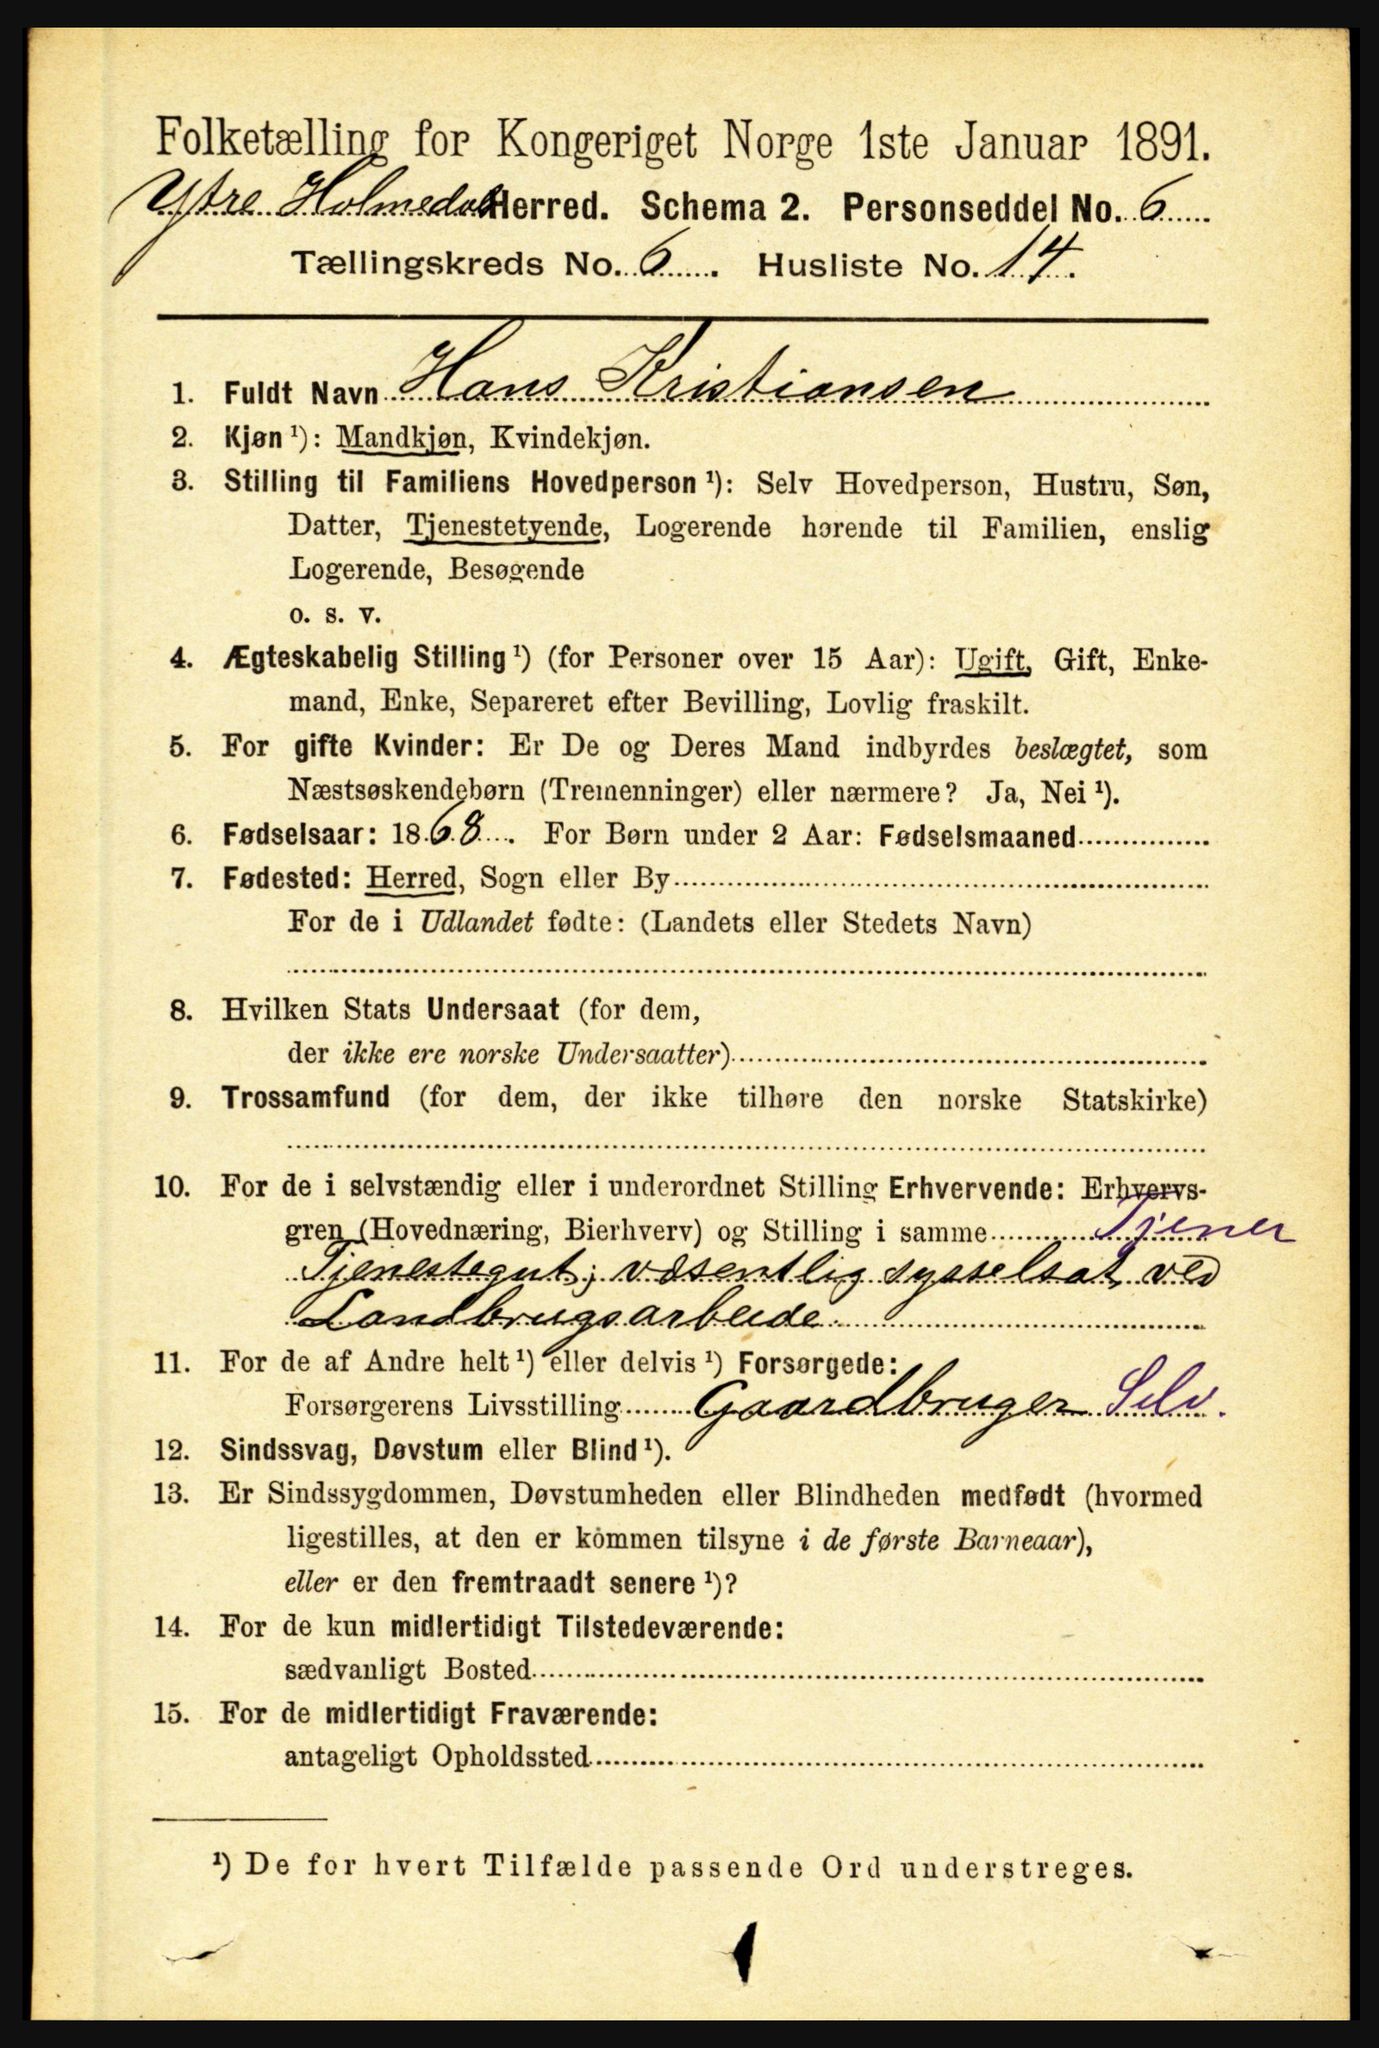 Folketælling for Kongeriget Norge 1ste Januar 1891.
Ytre Holmedal Herred. Schema 2. Personseddel No. 6
Tællingskreds No. 6. Husliste No. 14.
1. Fuldt Navn Hans Kristiansen
2. Kjøn ¹): Mandkjøn, Kvindekjøn.
3. Stilling til Familiens Hovedperson ¹): Selv Hovedperson, Hustru, Søn,
Datter, Tjenestetyende, Logerende hørende til Familien, enslig
Logerende, Besøgende
o. s. v.
4. Ægteskabelig Stilling ¹) (for Personer over 15 Aar): Ugift, Gift, Enke-
mand, Enke, Separeret efter Bevilling, Lovlig fraskilt.
5. For gifte Kvinder: Er De og Deres Mand indbyrdes beslægtet, som
Næstsøskendebørn (Tremenninger) eller nærmere? Ja, Nei ¹).
6. Fødselsaar: 1868. For Børn under 2 Aar: Fødselsmaaned
7. Fødested: Herred, Sogn eller By
For de i Udlandet fødte: (Landets eller Stedets Navn)
8. Hvilken Stats Undersaat (for dem,
der ikke ere norske Undersaatter)
9. Trossamfund (for dem, der ikke tilhøre den norske Statskirke)
10. For de i selvstændig eller i underordnet Stilling Erhvervende: Erhvervs-
gren (Hovednæring, Bierhverv) og Stilling i samme Tjener
Tjenestegut; væsentlig sysselsat ved
Landbrugsarbeide
11. For de af Andre helt ¹) eller delvis ¹) Forsørgede:
Forsørgerens Livsstilling Gaardbruger Selv.
12. Sindssvag, Døvstum eller Blind ¹).
13. Er Sindssygdommen, Døvstumheden eller Blindheden medfødt (hvormed
ligestilles, at den er kommen tilsyne i de første Barneaar),
eller er den fremtraadt senere ¹)?
14. For de kun midlertidigt Tilstedeværende:
sædvanligt Bosted
15. For de midlertidigt Fraværende:
antageligt Opholdssted
¹) De for hvert Tilfælde passende Ord understreges.